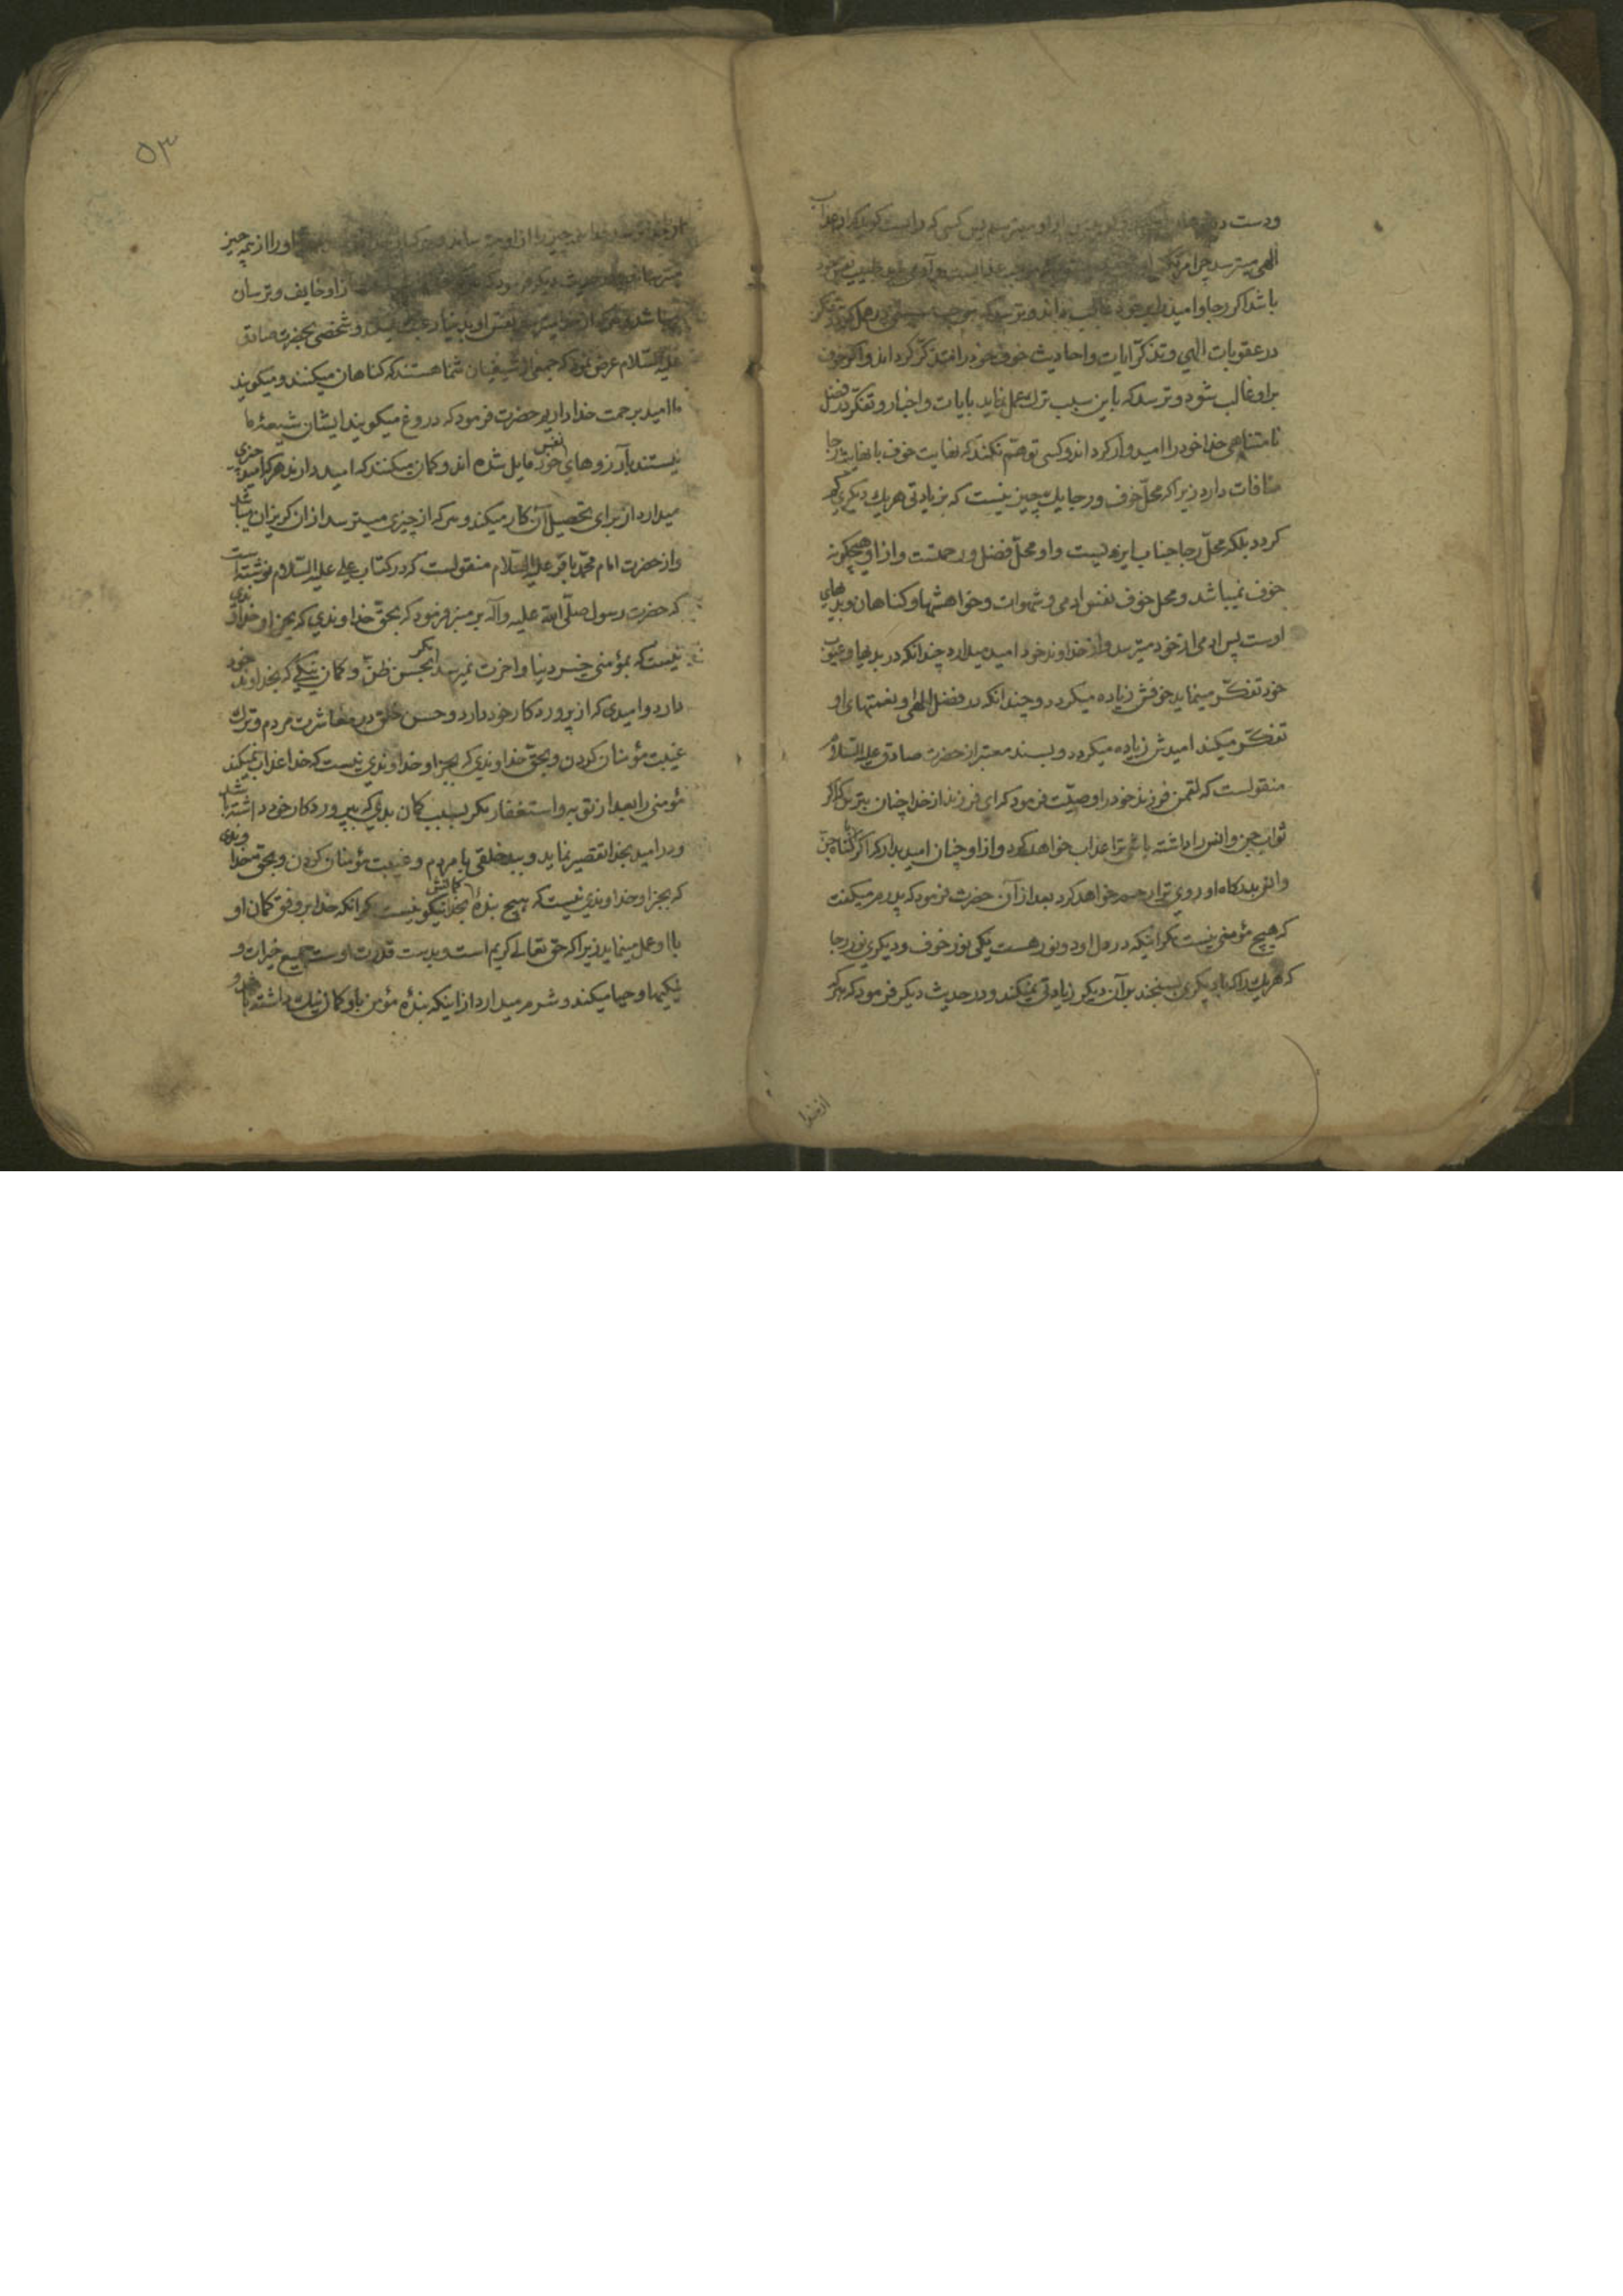 ودست در
الهی میترسد چرا مرتکب
باشد اگر رجا و امید را بر خود غالب داند و ترسد که
در عقوبات الهی و تذکر ایات و احادیث خوف خود را متذکر گرداند و اگر خوف
بر او غالب شود و ترسد که باین سبب ترک عمل نماید بایات و اخبار و تفکر در فضل
نامتناهی خدا خود را امیدوار گرداند و کسی توهم نکند که نهایت خوف با نهایت رجا
منافات دارد زیرا که محل خوف و رجا یک چیز نیست که بزیادتی هر یک دیگری کم
گردد بلکه محل رجا جناب ایزدیست و او محل فضل و رحمتست و از او هیچگونه
خوف نمیباشد و محل خوف نفس ادمی و شهوات و خواهشها و گناهان و بدیهای
اوست پس ادمی از خود میترسد و از خداوند خود امید میدارد چندانکه در بدیها و عیوب
خود تفکر مینماید خوفش زیاده میگردد و چندانکه در فضل الهی و نعمتهای او
تفکر میکند امیدش زیاده میگردد و بسند معتبر از حضرت صادق علیه السلام
منقولست که لقمن فرزند خود را وصیت فرمود که ای فرزند از خدا چنان بترس که اگر
ثواب جن و انس را داشته باشی ترا عذاب خواهد کرد و از او چنان امید بدار که اگر گناه جن
و انس بدرگاه او روی ترا رحم خواهد کرد بعد از آن حضرت فرمود که پدرم میگفت
که هیچ مؤمنی نیست مگر انیکه در دل او دو نور هست یکی نور خوف و دیگری نور رجا
که هر یک را که با دیگری بسنجند بر آن دیگر زیادتی نمیکند و در حدیث دیگر فرمود که هر که
از خدا
۵۳
از خدا ترسد خدا همه چیز را از او میترساند و هر که از خدا او را از همه چیز
میترساند و در حدیث دیگر فرمود که از او خایف و ترسان
میباشد و هر که از خدا میترسد نفس او بدنیا رغبت نمیکند و شخصی بحضرت صادق
علیه السلام عرض نمود که جمعی از شیعیان شما هستند که گناهان میکنند و میگویند
ما امید برحمت خدا داریم حضرت فرمود که دروغ میگویند ایشان شیعۀ ما
نیستند بآرزوهای نفس خود مایل شده اند و گمان میکنند که امید دارند هر که امید چیزی
میدارد از برای تحصیل آن کار میکند و هر که از چیزی میترسد از ان گریزان میباشد
و از حضرت امام محمد باقر علیه السلام منقولست که در کتاب علی علیه السلام نوشته است
که حضرت رسول صلی الله علیه وآله بر منبر فرمود که بحق خداوندی که بجز او خداوندی
نیست که بمؤمنی خیر دنیا و اخرت نمیرسد مگر بحسن ظن و گمان نیکی که بخداوند خود
دارد و امیدی که از پروردگار خود دارد و حسن خلق در معاشرت مردم و ترک
غیبت مؤمنان کردن و بحق خداوندی که بجز او خداوندی نیست که خدا عذاب نمیکند
مؤمنی را بعد از توبه و استغفار مگر بسبب گمان بدی که بپروردگار خود داشته باشد
و در امید بخدا تقصیر نماید و ببدخلقی با مردم و غیبت مؤمنان کردن و بحق خداوندی
که بجز او خداوندی نیست که هیچ بندۀ گمانش بخدا نیکو نیست مگر انکه خدا بر وفق گمان او
با او عمل مینماید زیرا که حق تعالی کریم است و بدست قدرت اوست جمیع خیرات و
نیکیها و حیا میکند و شرم میدارد از اینکه بندۀ مؤمن باو گمان نیک داشته باشد و